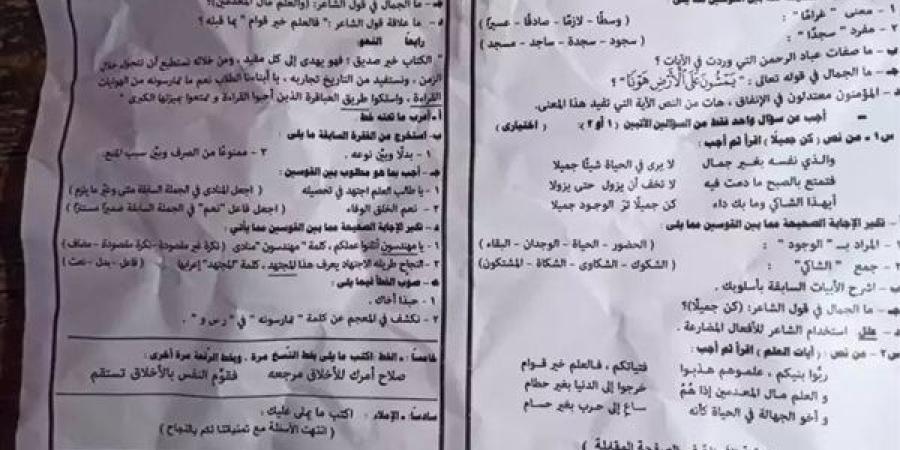 ١ - معنى " غرامًا " : ( وسطًا - لازمًا - صادقًا - عسيرًا )
٢ - مفرد " سجدًا " : ( سجود - سجدة - ساجد - مسجد )
ب - ما صفات عباد الرحمن التي وردت في الآيات ؟
جـ - ما الجمال في قوله تعالى : " يَمْشُونَ عَلَى الْأَرْضِ هَوْنًا " ؟
د - المؤمنون معتدلون في الإنفاق ، هات من النص الآية التي تفيد هذا المعنى.
أجب عن سؤال واحد فقط من السؤالين الآتيين ( ١ أو ٢ ) : ( اختيارى )
س١ - من نص ( كن جميلًا ) اقرأ ثم أجب :
والذي نفسه بغير جمال لا يرى في الحياة شيئًا جميلا
فتمتع بالصبح ما دمت فيه لا تخف أن يزول حتى يزولا
أيهذا الشاكي وما بك داء كن جميلًا تر الوجود جميلا
أ - تخير الإجابة الصحيحة مما بين القوسين مما يلى :
١ - المراد بـ " الوجود " : ( الحضور - الحياة - الوجدان - البقاء )
٢ - جمع " الشاكي " : ( الشكوك - الشكاوى - الشكاة - المشتكون )
ب - اشرح الأبيات السابقة بأسلوبك.
جـ - ما الجمال في قول الشاعر : (كن جميلًا)؟
د - علل استخدام الشاعر للأفعال المضارعة .
س٢ - من نص : ( آيات العلم ) اقرأ ثم أجب :
ربُّوا بنيكم ، علموهم هذبوا فتياتكم ، فالعلم خير قوام
و العلم مال المعدمين إذا هُمُ خرجوا إلى الدنيا بغير حطام
و أخو الجهالة في الحياة كأنه ساع إلى حرب بغير حسام
في الصفحة المقابلة )
جـ - ما الجمال في قول الشاعر : (والعلم مال المعدمين)؟
د - ما علاقة قول الشاعر : " فالعلم خير قوام " بما قبله ؟
رابعًا النحو
" الكتاب خير صديق ؛ فهو يهدى إلى كل مفيد ، ومن خلاله نستطيع أن نتجول خلال
الزمن ، ونستفيد من التاريخ تجاربه ، يا أبناءنا الطلاب نعم ما تمارسونه من الهوايات
القراءة ، واسلكوا طريق العباقرة الذين أحبوا القراءة و تمتعوا بميزتها الكبرى "
أ - أعرب ما تحته خط
ب - استخرج من الفقرة السابقة ما يلى :
١ - بدلًا وبيِّن نوعه . ٢ - ممنوعًا من الصرف وبيِّن سبب المنع.
جـ - أجب بما هو مطلوب بين القوسين :
١ - يا طالب العلم اجتهد في تحصيله ( اجعل المنادى في الجملة السابقة مثنى وغير ما يلزم )
٢ - نعم الخلق الوفاء ( اجعل فاعل "نعم" في الجملة السابقة ضميرًا مستترًا )
د - تخير الإجابة الصحيحة مما بين القوسين مما يأتي :
١ - يا مهندسون أتقنوا عملكم ، كلمة " مهندسون" منادى ( نكرة غير مقصودة - نكرة مقصودة - مضاف )
٢ - النجاح طريقه الاجتهاد يعرف هذا المجتهد ، كلمة "المجتهد" إعرابها ( فاعل - بدل - نعت )
هـ - صوب الخطأ فيما يلى :
١ - حبذا أخاك .
٢ - نكشف في المعجم عن كلمة " تمارسونه " في " ر س و " .
خامسًا : - الخط اكتب ما يلى بخط النسخ مرة . وبخط الرقعة مرة أخرى :
صلاح أمرك للأخلاق مرجعه فقوّم النفس بالأخلاق تستقم
سادسًا : - الإملاء . اكتب ما يملى عليك :
( انتهت الأسئلة مع تمنياتنا لكم بالنجاح )